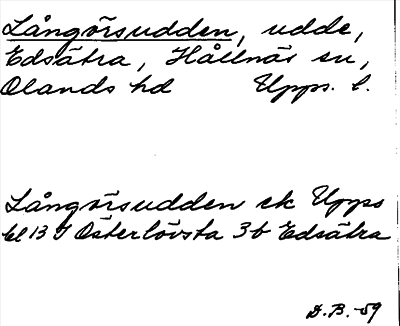 Långörsudden, udde,
Edsätra, Hållnäs sn,
Olands hd Upps. l.
Långörsudden ek Upps
bl 13 J Österlövsta 3b Edsätra
D.B. -59